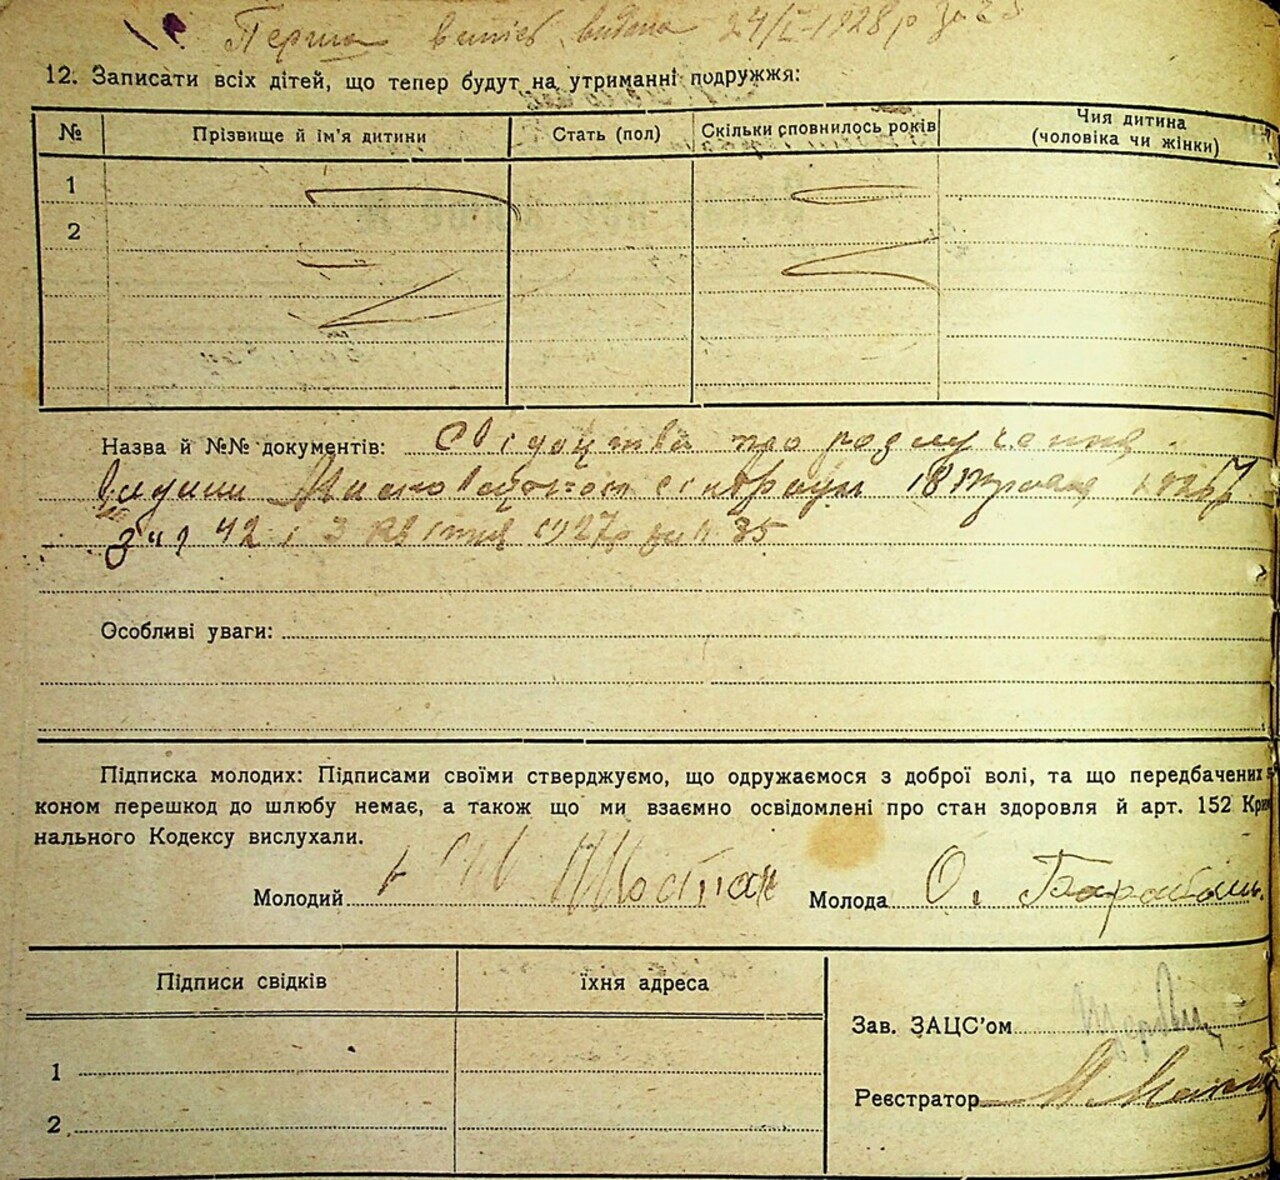 Перша витпів видана 24/I-1928 р за 23
12. Записати всіх дітей, що тепер будут на утриманні подружжя:
№ Прізвище й ім'я дитини Стать (пол) Скільки сповнилось років Чия дитина
(чоловіка чи жінки)
1
2
Назва й №№ документів: Свідоцтва про розлучення
видани сільради 18 1927
за № 42 і 3 квітня 1927р за № 35
Особливі уваги:
Підписка молодих: Підписами своїми стверджуємо, що одружаємося з доброї волі, та що передбачених
коном перешкод до шлюбу немає, а також що ми взаємно освідомлені про стан здоровля й арт. 152 Крим
нального Кодексу вислухали.
Молодий Молода О. Барабаш
Підписи свідків їхня адреса
Зав. ЗАЦС'ом
1
Реєстратор
2